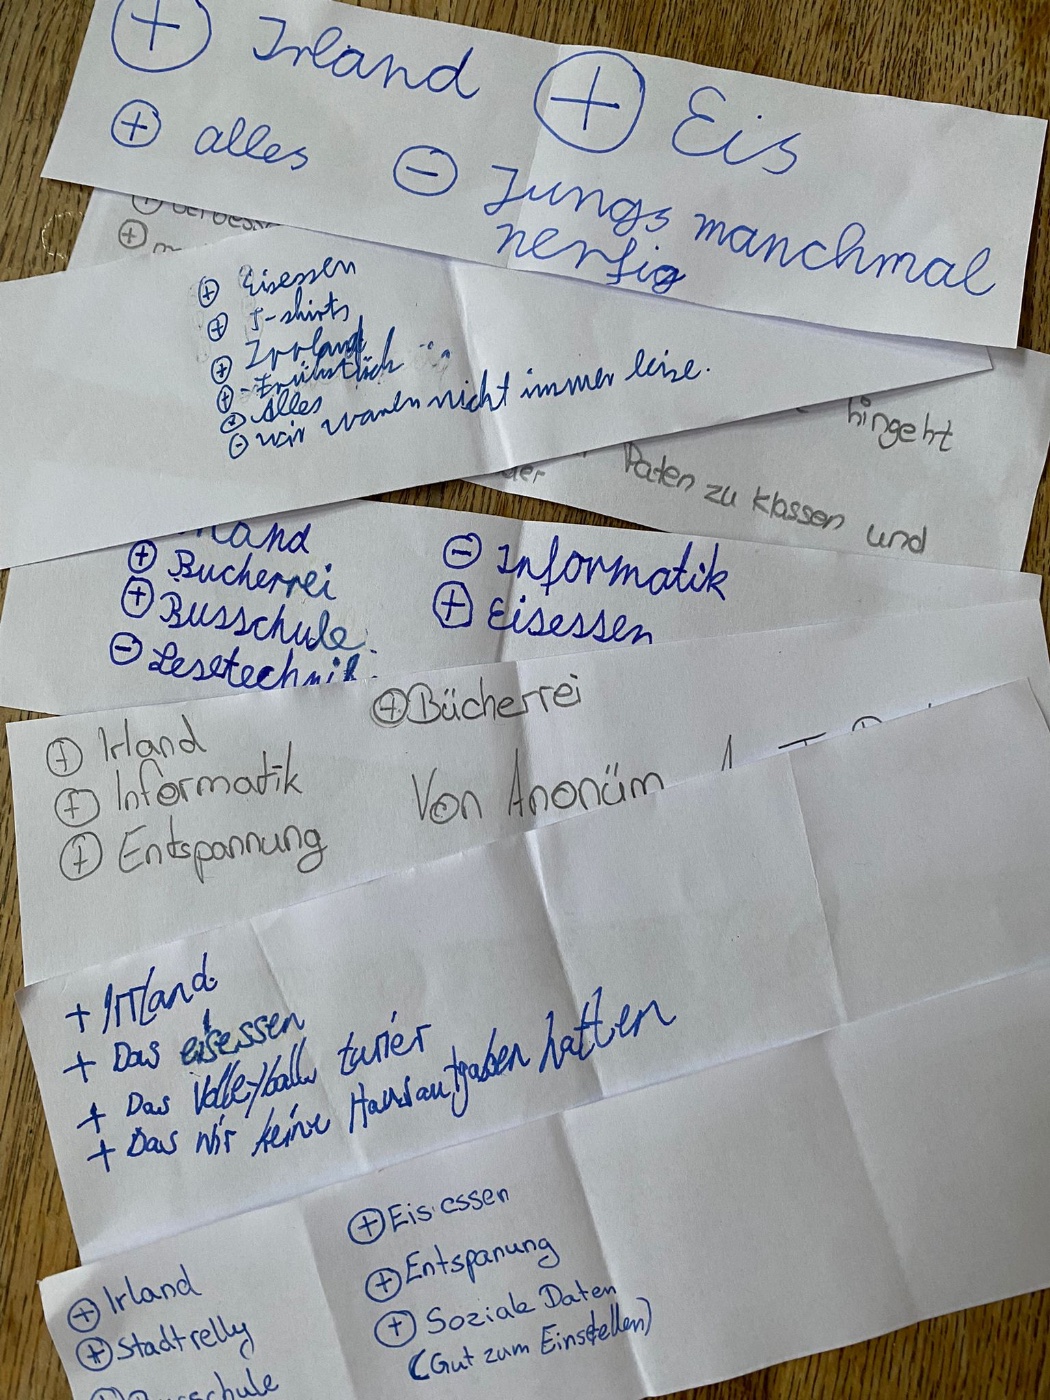 ⊕ Irland ⊕ Eis
⊕ alles ⊖ Jungs manchmal
nerfig
⊕ Eisessen
⊕ T-shirts
⊕ Irrland
⊕ -Frühstück
⊕ Alles
⊖ wir waren nicht immer leise.
hingeht
Paten zu klassen und
der
⊕ Bucherrei
⊕ Busschule.
⊖ Lesetechnik.
⊖ Informatik
⊕ Eisessen
⊕ Irland
⊕ Informatik
⊕ Entspannung
⊕ Bücherrei
Von Anonüm
+ Irrland.
+ Das eisessen
+ Das Volleyball turier
+ Das wir keine Hausautgaben hatten
⊕ Irland
⊕ Stadtrelly
Busschule
⊕ Eis essen
⊕ Entspanung
⊕ Soziale Daten
(Gut zum Einstellen)